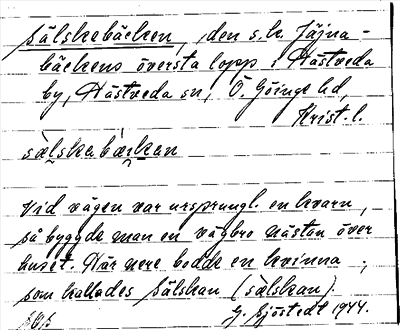 Sälskabäcken, den s.k. Jäjna-
bäckens översta lopp i Hästveda
by, Hästveda sn, Ö. Göinge hd,
Krist. l.
sælska bærkan
Vid vägen var ursprungl. en kvarn,
så byggde man en vägbro nästan över
huset. Där nere bodde en kvinna,
som kallades Sälskan (sælskan).
G. Sjöstedt 1944.